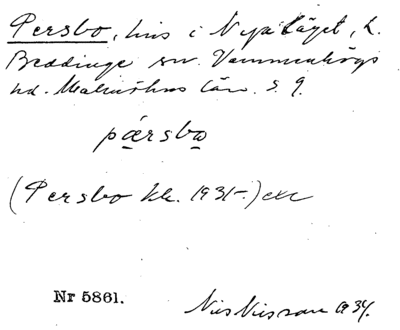 Persbo, hus i Nya Läget, L.
Beddinge sn. Vemmenhögs
hd. Malmöhus län. s. 9.
pǽrsbo
(Persbo kk. 1931-)
Nr 5861.
Nils Nilsson 1934.